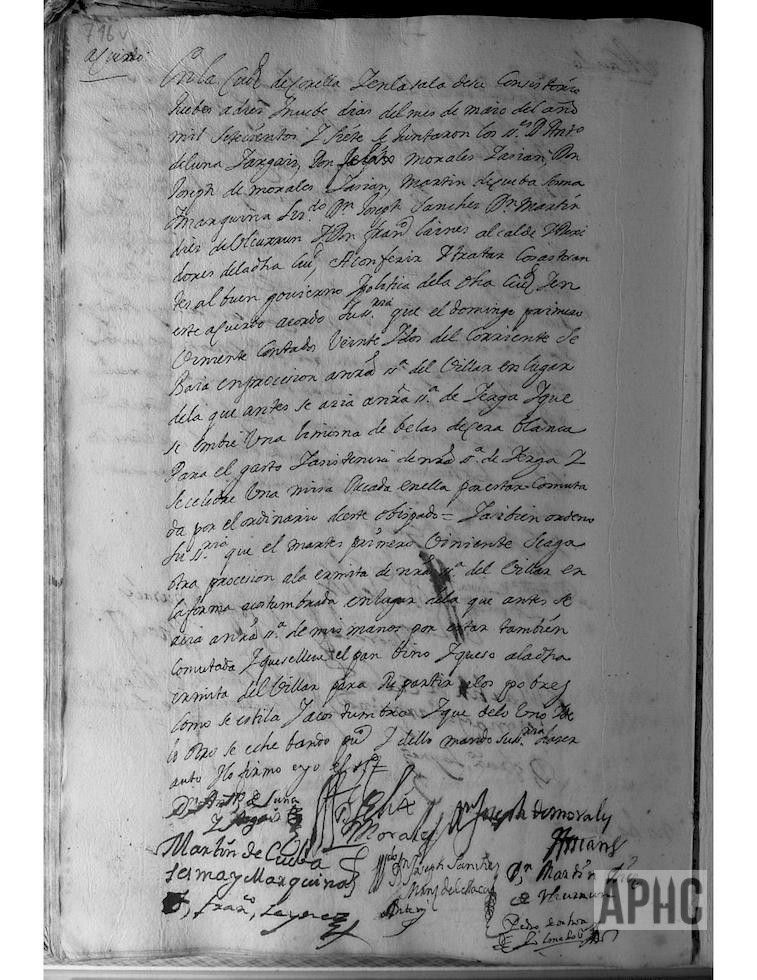 796v
acuerdo
En la Ciud de Corella Y en la sala de su Consistorio
Juebes a diez Y nuebe dias del mes de maio del año
mil Setecientos Y siete se Juntaron los ss.es D Anto
de luna Y argaiz, Don felix morales Y asian Don
Joseph de morales Y asian, Martin de cueba serma
Y Marquina Lizdo Dn Joseph Sanchez Dn Martin
Y Don franco laines alcalde Y Rexi
dores de la dha Ciud, A Conferir Y tratar Cosas tocan
tes al buen govierno Y politica de la dha Ciud Y en
este acuerdo acordo su ssria que el domingo primero
Viniente Contados Veinte Y dos del Corriente Se
Baia en procesion a nra sra del Villar en lugar
de la que antes se acia a nra sra de Yerga Y que
se embie Una limosna de belas de cera blanca
Para el gasto Y asistencia de nra sra de Yerga Y
Se celebre Una misa Recada en ella por estar Comuta
da por el ordinario deeste obispado = Y tanbien ordeno
Su ssria que el martes primero Viniente Se aga
otra procesion a la ermita de nra sra del Villar en
la forma acostumbrada en lugar de la que antes se
acia a nra sra de mis manos por estar tambien
Comutada Y que se lleve el pan Vino Y queso a la dha
ermita del Villar para Repartir a los pobres
Como se estila Y acostumbra Y que de lo Uno Y de
lo otro se eche bando Y dello mando su ssria hacer
auto Y lo firmo e yo el ssno
Dn Antto de Luna
Y Argaiz
D. Felix
Morales
Dn Joseph de morales
Y Asian
Martin de Cueba
serma y Marquina
Lizdo Dn Joseph Sanchez
Dn Martin Diez
de Ulcurrun
D, franco Laynez
APHC